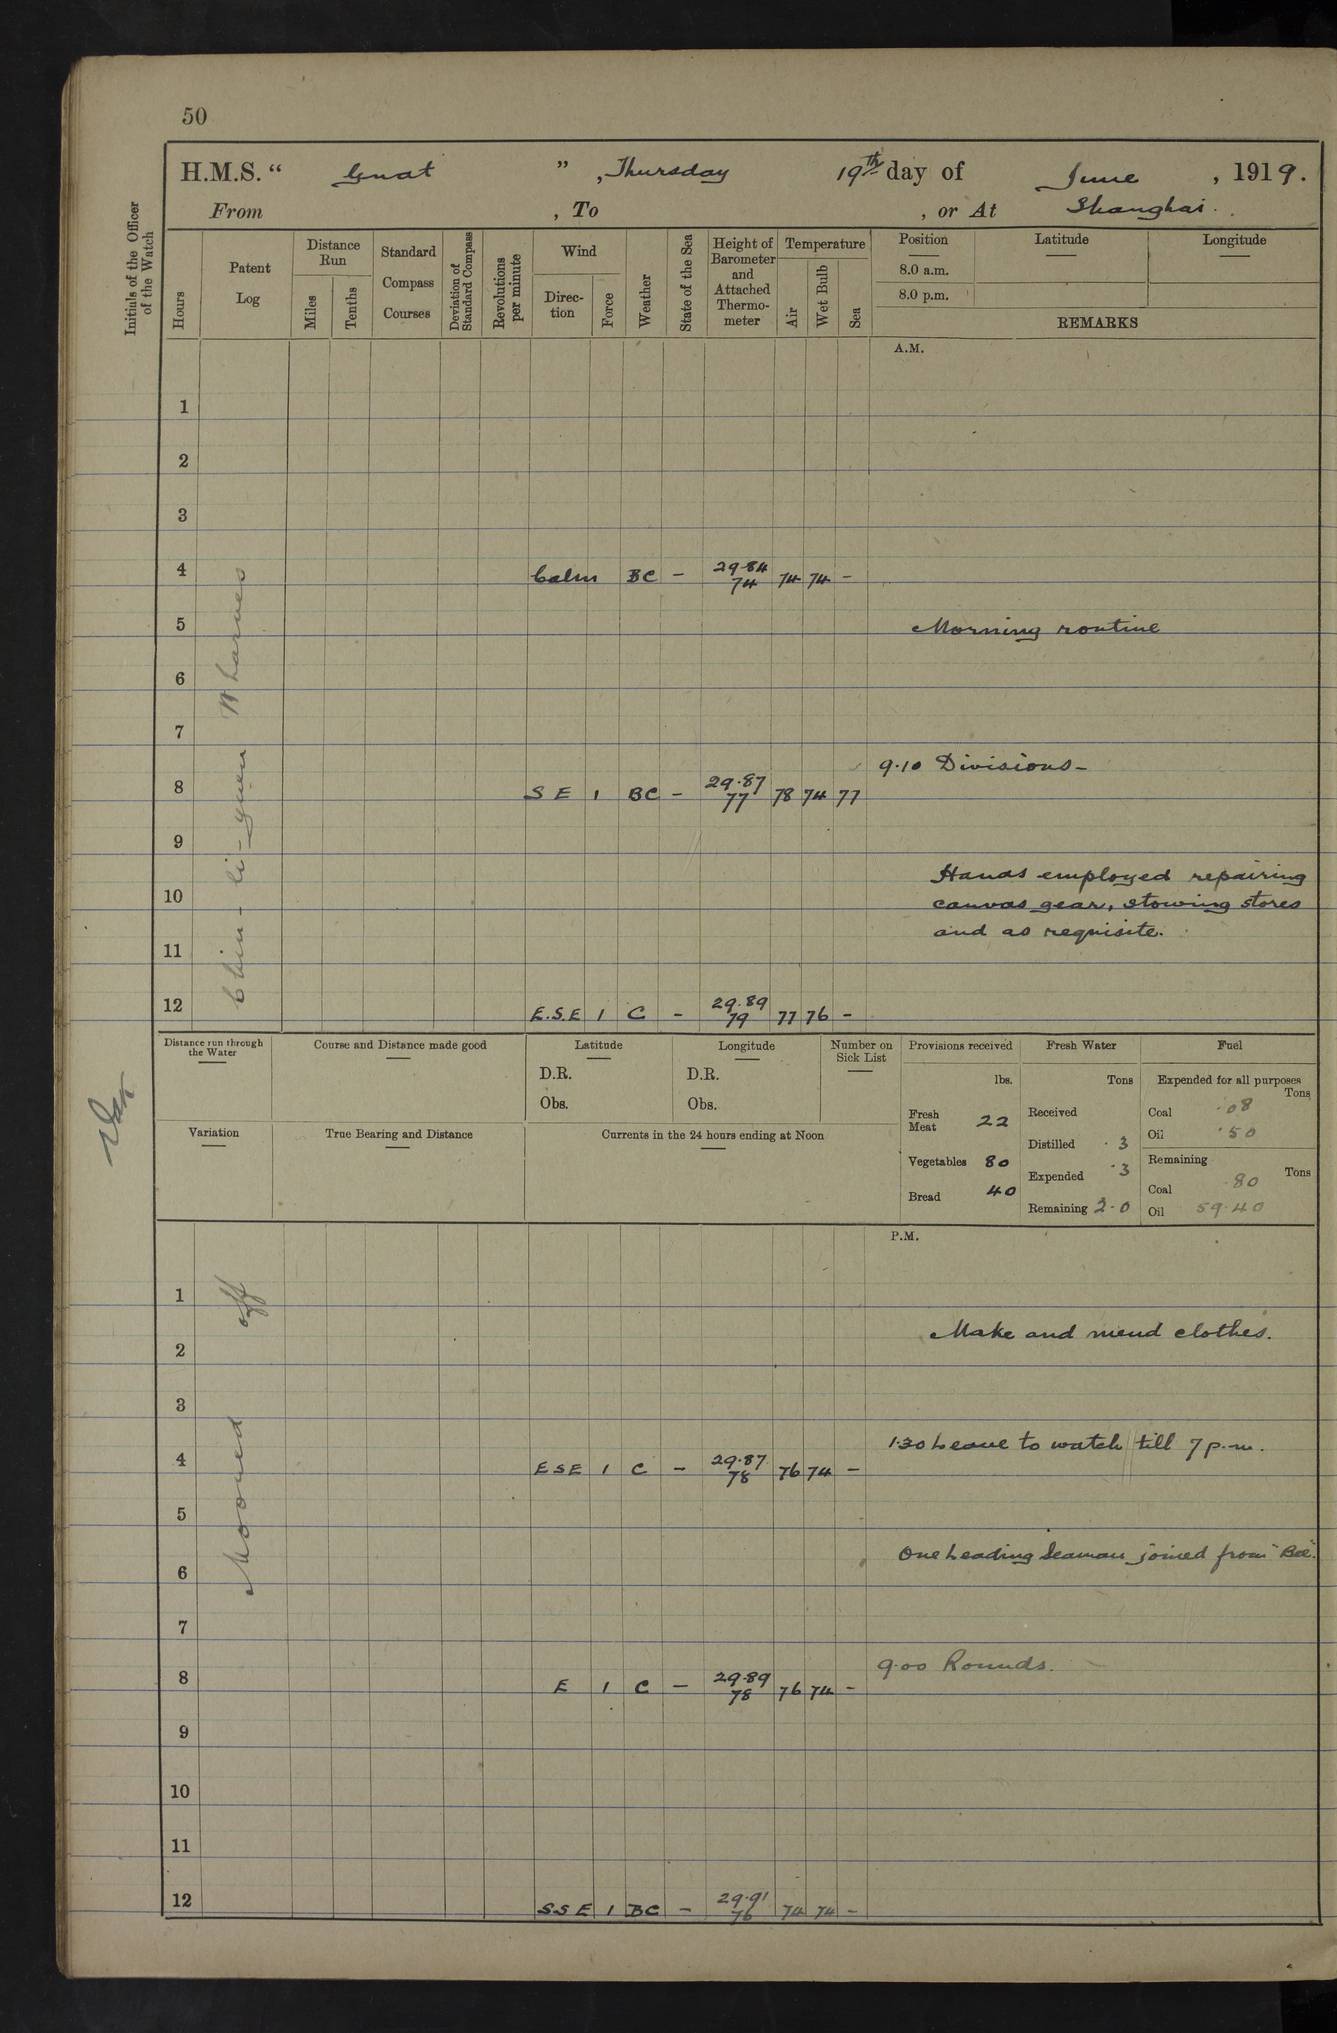 50
H.M.S. " Gnat " , Thursday 19th day of June , 1919.
From , To , or At Shanghai.
Initials of the Officer of the Watch
Hours
Patent Log
Distance Run
Miles
Tenths
Standard Compass Courses
Deviation of Standard Compass
Revolutions per minute
Wind
Direc-tion
Force
Weather
State of the Sea
Height of Barometer and Attached Thermo-meter
Temperature
Air
Wet Bulb
Sea
Position
8.0 a.m.
8.0 p.m.
Latitude
Longitude
REMARKS
A.M.
1
2
3
4 Calm BC - 29.84 74 74 74 -
5 Morning routine
6
7
9.10 Divisions -
8 S E 1 BC - 29.87 77 78 74 77
9
Hands employed repairing
10 canvas gear, stowing stores
and as requisite.
11
12 E.S.E 1 C - 29.89 79 77 76 -
Distance run through the Water
Course and Distance made good
Latitude
D.R.
Obs.
Longitude
D.R.
Obs.
Number on Sick List
Variation
True Bearing and Distance
Currents in the 24 hours ending at Noon
Provisions received
lbs.
Fresh Meat 22
Vegetables 80
Bread 40
Fresh Water
Tons
Received
Distilled .3
Expended .3
Remaining 2.0
Fuel
Expended for all purposes
Tons
Coal .08
Oil .50
Remaining
Tons
Coal .80
Oil 59.40
P.M.
1
Make and mend clothes.
2
3
1.30 Leave to watch till 7 p.m.
4 ESE 1 C - 29.87 78 76 74 -
5
One Leading Seaman joined from "Bee".
6
7
9.00 Rounds.
8 E 1 C - 29.89 78 76 74 -
9
10
11
12 SSE 1 BC - 29.91 76 74 74 -
Moored off Chin-li-yuen Wharves